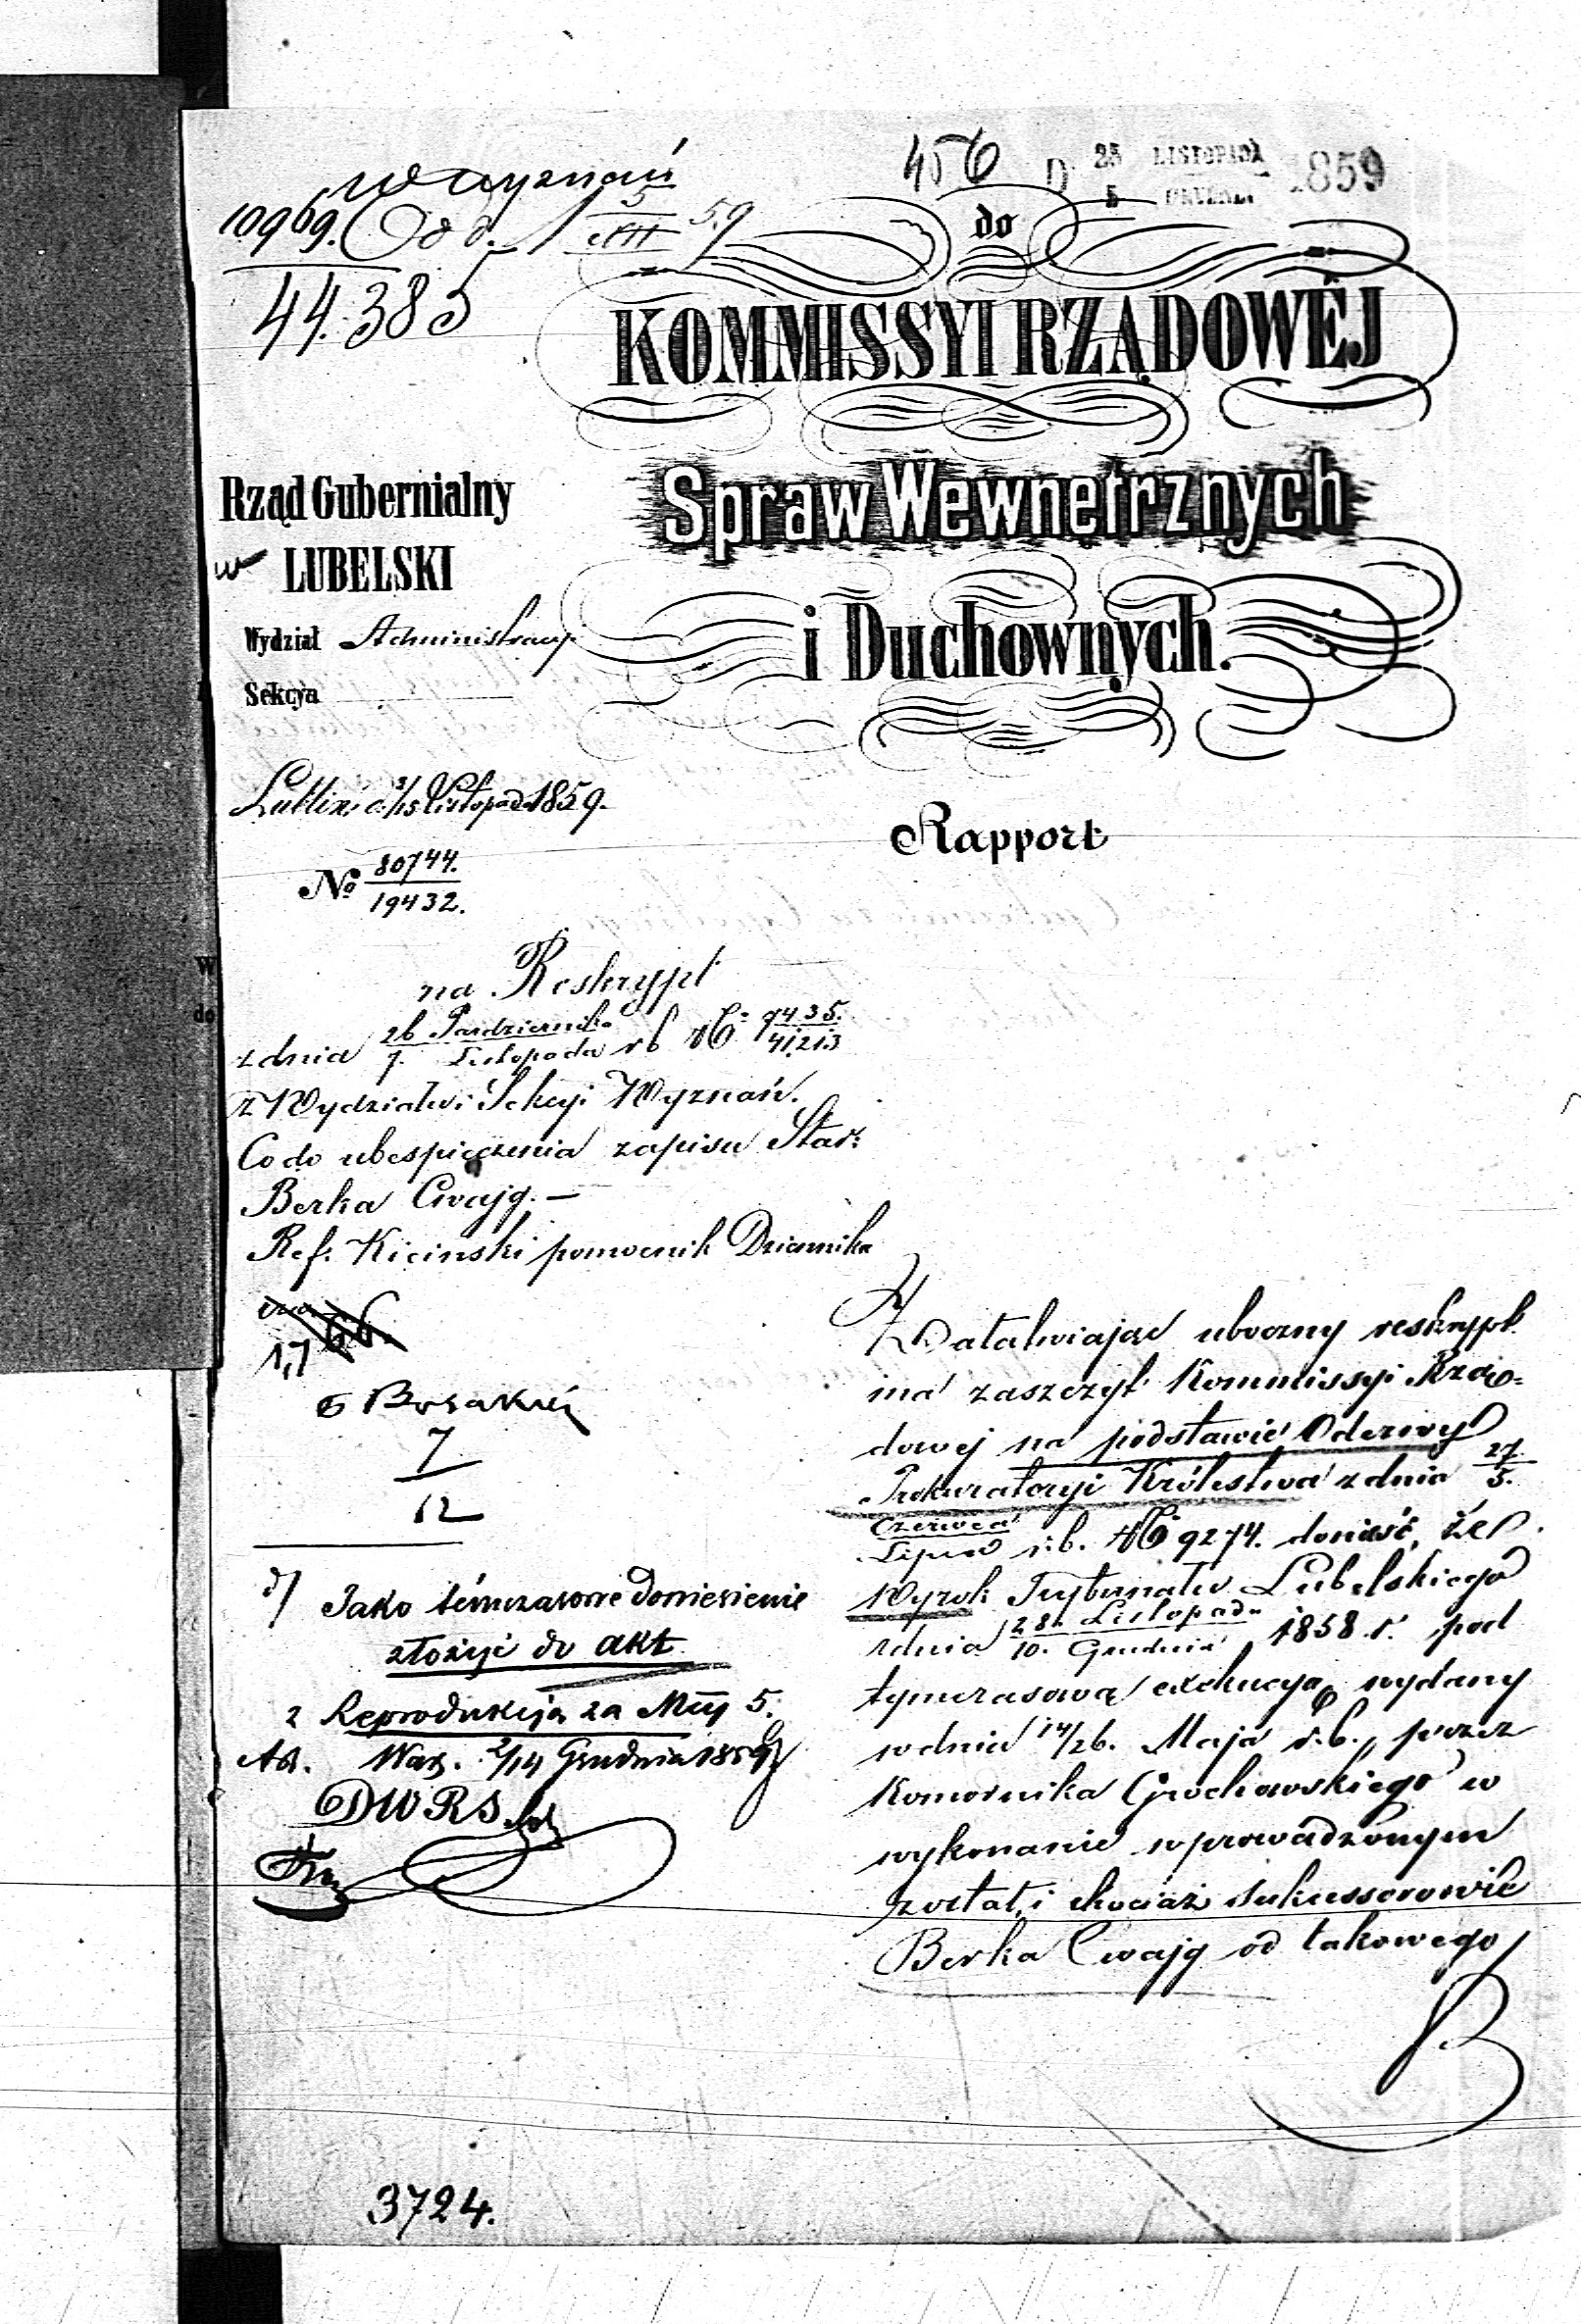 Wyznań
456 D. 25 LISTOPADA 1859
5
10969. Od d. 5/XII 59
44.385
do
KOMMISSYI RZĄDOWÉJ
Spraw Wewnętrznych
i Duchownych.
Rząd Gubernialny
w LUBELSKI
Wydział Administracyi
Sekcya
Lublin d. 3/15 Listopada 1859.
Rapport
№ 80744.
19432.
na Reskrypt
z dnia 26 Pazdziernika / 7. Listopada r b № 9435. / 41,213
z Wydziału i Sekcyi Wyznań.
Co do ubespieczenia zapisu Star:
Berka Cwajg. —
Ref. Kicinski pomocnik Dziennika
1,7
6
7
12
Załatwiając uboczny reskrypt
ma zaszczyt Kommissyi Rzą=
dowej na podstawie Odezwy
Prokuratoryi Królestwa z dnia 27/5.
Czerwca / Lipca r.b. № 9274. donieść, że
Wyrok Trybunału Lubelskiego
z dnia 28. Listopada / 10. Grudnia 1858 r. pod
tymczasową exekucyą wydany
w dniu 14/26. Maja r.b., przez
Komornika Grochowskiego w
wykonanie wprowadzonym
został, i chociaż sukcessorowie
Berka Cwajg od takowego
Jako témczasowe doniesienie
złożyć do akt
2 Reprodukcija za Mcy 5.
War. 2/14 Grudnia 1859
DWRS
3724.